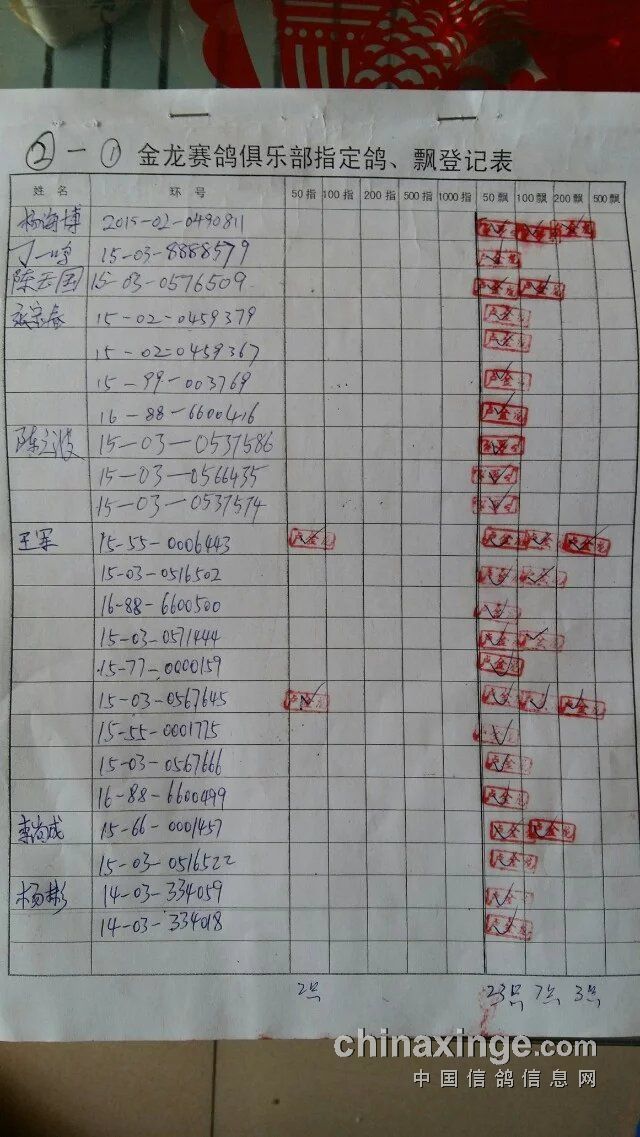 ② - ① 金龙赛鸽俱乐部指定鸽、飘登记表
姓名 环号 50指 100指 200指 500指 1000指 50飘 100飘 200飘 500飘
杨海博 2015-02-0490811
丁一鸣 15-03-8888579
陈云国 15-03-0576509
15-02-0459379
15-02-0459367
15-99-003769
16-88-6600416
陈 15-03-0537586
15-03-0566435
15-03-0537574
王军 15-55-0006443
15-03-0516502
16-88-6600500
15-03-0571444
15-77-0000159
15-03-0567645
15-55-0001775
15-03-0567666
16-88-6600499
李尚成 15-66-0001457
15-03-0516522
杨彬 14-03-334059
14-03-334018
2只 23只 7只 3只
chinaxinge.com
中国信鸽信息网